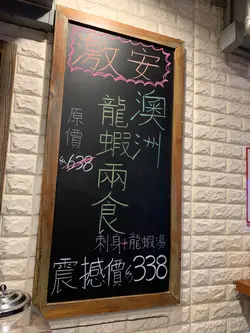 激安
澳洲
龍蝦兩食
原價
$638
刺身+龍蝦湯
震撼價$338